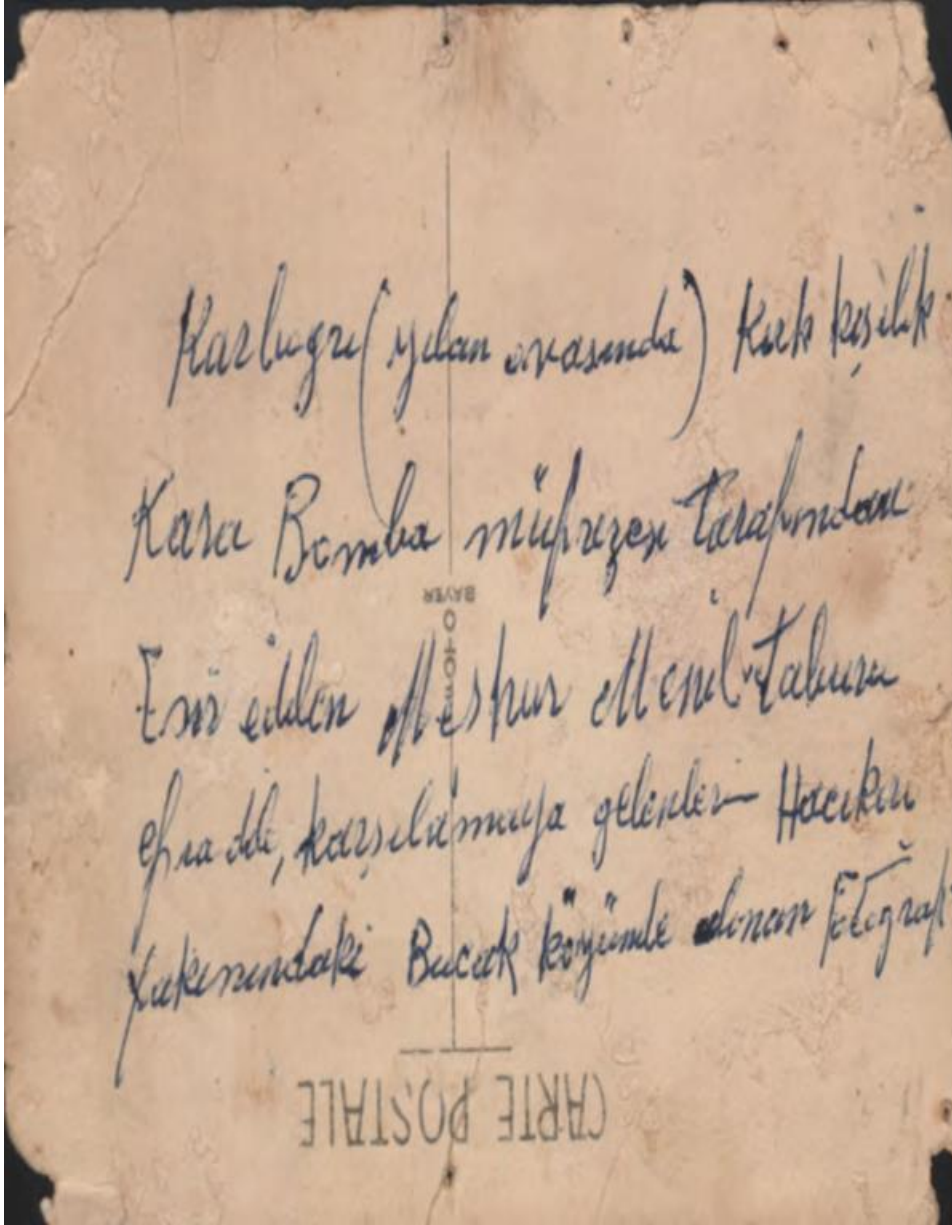 Karboğzı (yılan ovasında) Kırk kişilik
Kara Bomba müfrezesi tarafından
Esir edilen Meşhur Menil Taburu
efradile, karşılamaya gelenler Hacıkırı
yakınındaki Bucak köyünde alınan Fotoğraf
BAYER
CARTE POSTALE